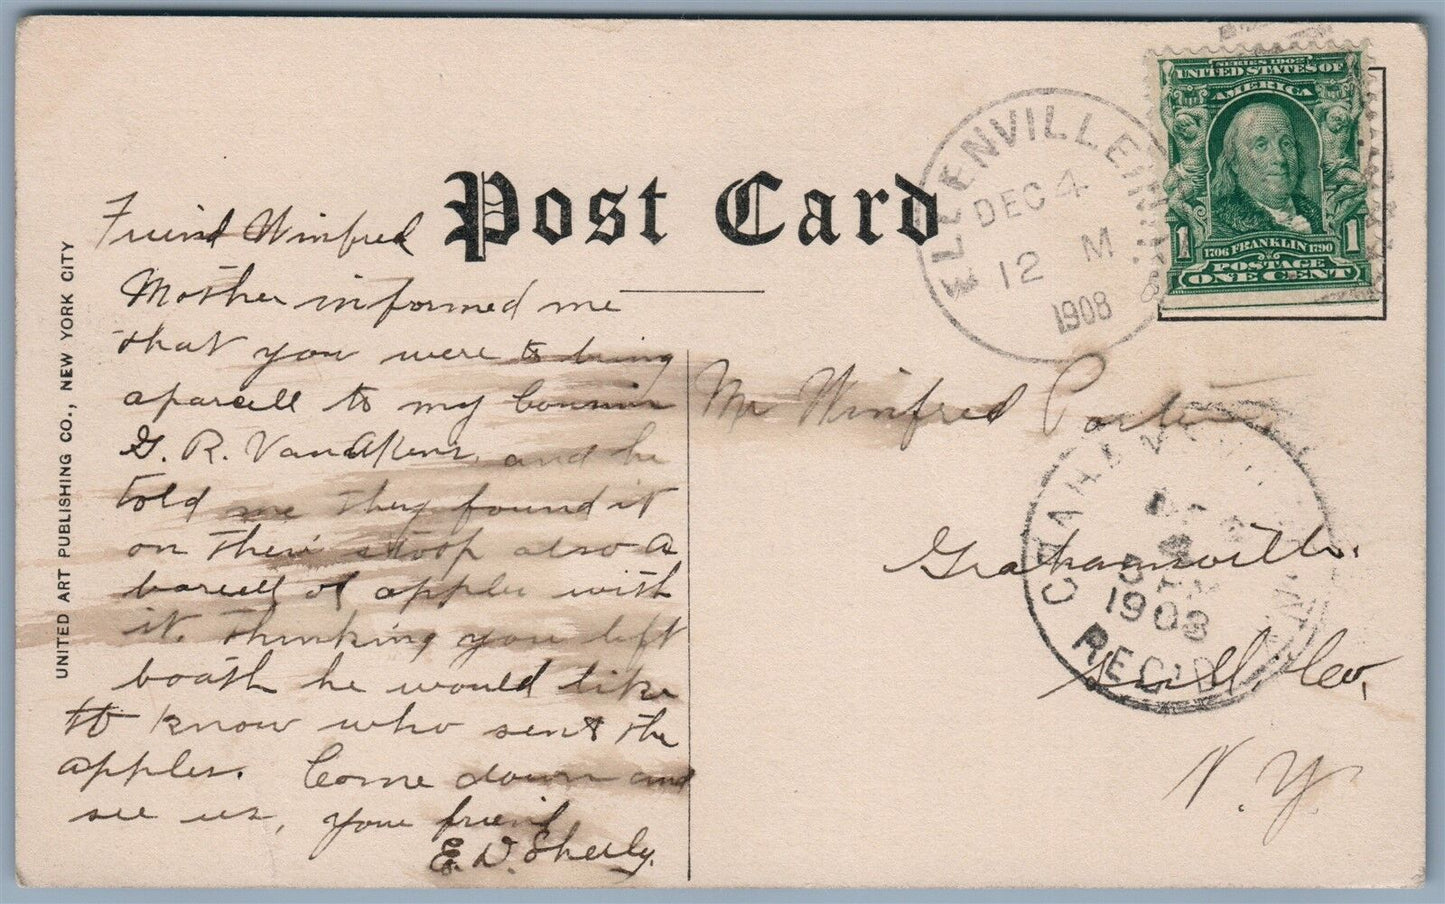 Post Card
UNITED ART PUBLISHING CO., NEW YORK CITY
Friend Winfred
Mother informed me
that you were to bring
a parcell to my Cousin
G. R. VanAken, and he
told me they found it
on their stoop also a
barell of apples with
it. thinking you left
boath he would like
to know who sent the
apples. Come down and
see us, your friend
E. D. Sheely.
ELLENVILLE, N.Y.
DEC 4
12 M
1908
SERIES 1902
UNITED STATES OF
AMERICA
1706 FRANKLIN 1790
1 1
POSTAGE
ONE CENT
Mr Winfred Porter
Grahamsville.
Sull. Co.
N. Y.
GRAHAMSVILLE
1908
REC'D